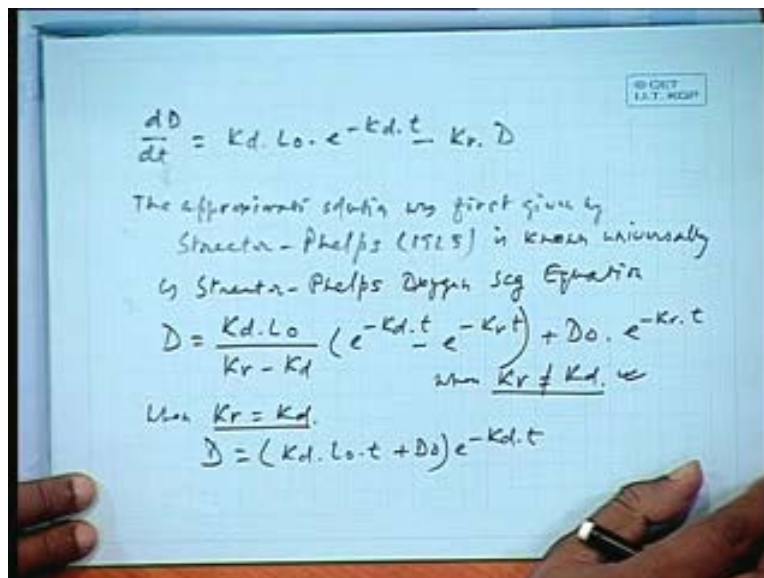 © CET
I.I.T. KGP
dD/dt = Kd. Lo. e^-Kd.t - Kr. D
The approximate solution was first given by
Streeter-Phelps (1925) is known universally
as Streeter-Phelps Oxygen sag Equation
D = Kd.Lo/(Kr-Kd) (e^-Kd.t - e^-Kr t) + Do. e^-Kr.t
when Kr ≠ Kd.
When Kr = Kd.
D = (Kd. Lo.t + Do) e^-Kd.t